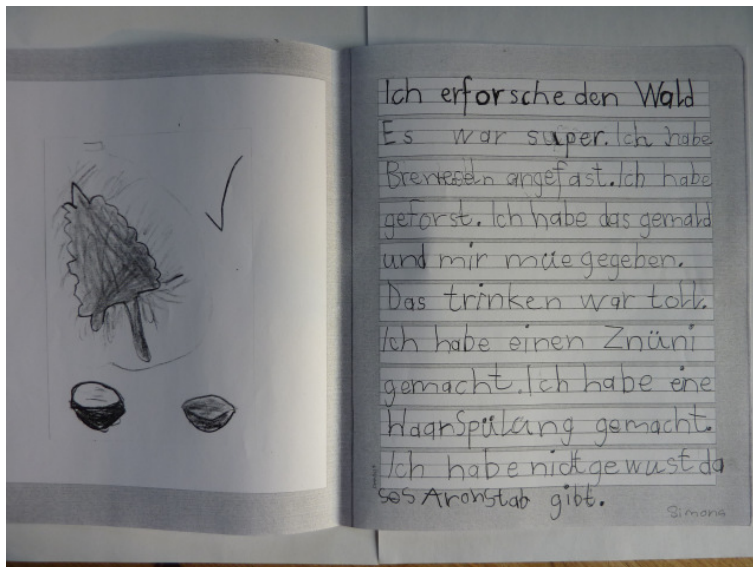 Ich erforsche den Wald
Es war super. Ich habe
angefast. Ich habe
geforst. Ich habe das gemald
und mir müe gegeben.
Das trinken war toll.
Ich habe einen Znüni
gemacht. Ich habe eine
Haarspülung gemacht.
Ich habe nicht gewust da
ses Aronstab gibt.
Simona